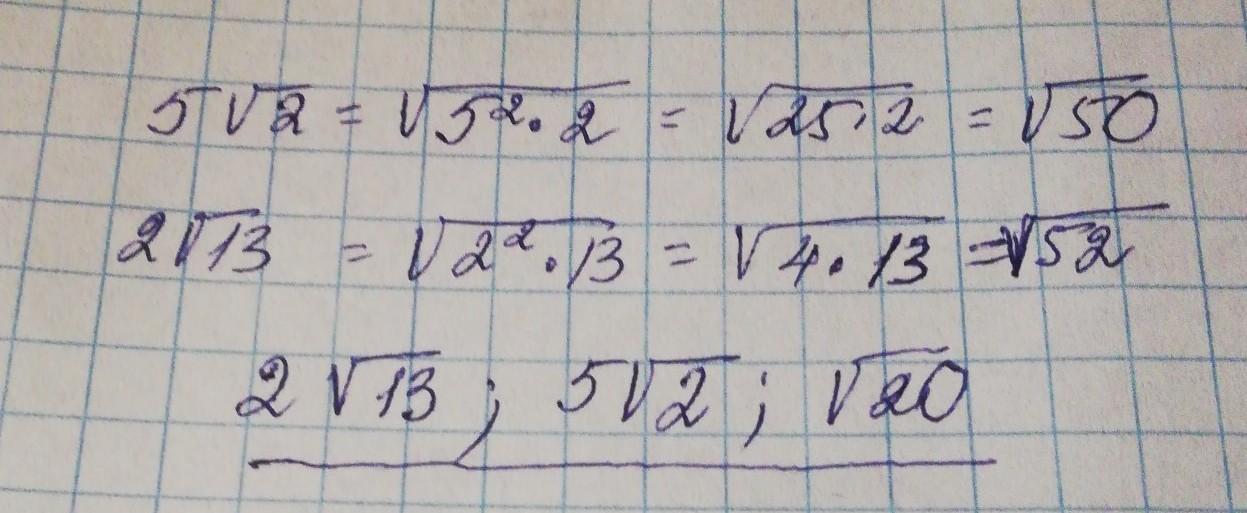 5√2 = √5²·2 = √25·2 = √50
2√13 = √2²·13 = √4·13 = √52
2√13; 5√2; √20